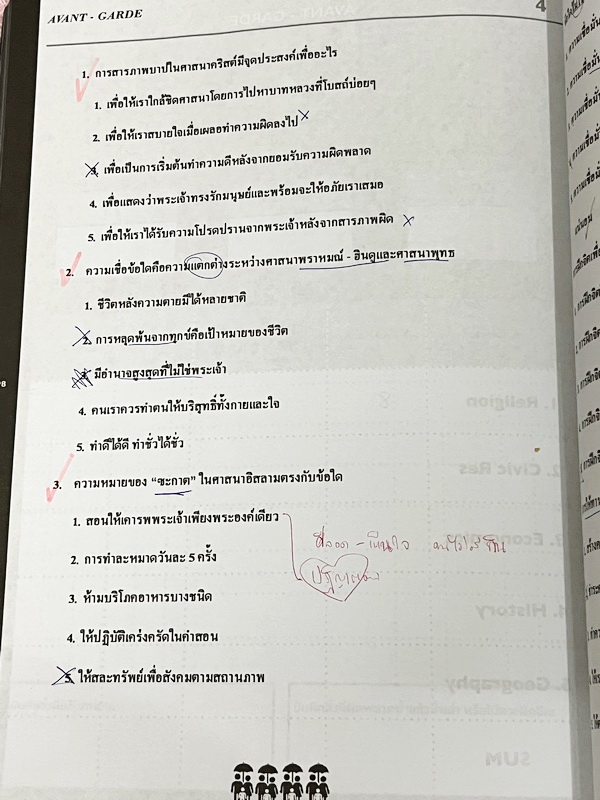 AVANT - GARDE
4
1. การสารภาพบาปในศาสนาคริสต์มีจุดประสงค์เพื่ออะไร
1. เพื่อให้เราใกล้ชิดศาสนาโดยการไปหาบาทหลวงที่โบสถ์บ่อยๆ
2. เพื่อให้เราสบายใจเมื่อเผลอทำความผิดลงไป
3. เพื่อเป็นการเริ่มต้นทำความดีหลังจากยอมรับความผิดพลาด
4. เพื่อแสดงว่าพระเจ้าทรงรักมนุษย์และพร้อมจะให้อภัยเราเสมอ
5. เพื่อให้เราได้รับความโปรดปรานจากพระเจ้าหลังจากสารภาพผิด
2. ความเชื่อข้อใดคือความแตกต่างระหว่างศาสนาพราหมณ์ - ฮินดูและศาสนาพุทธ
1. ชีวิตหลังความตายมีได้หลายชาติ
2. การหลุดพ้นจากทุกข์คือเป้าหมายของชีวิต
3. มีอำนาจสูงสุดที่ไม่ใช่พระเจ้า
4. คนเราควรทำตนให้บริสุทธิ์ทั้งกายและใจ
5. ทำดีได้ดี ทำชั่วได้ชั่ว
3. ความหมายของ “ซะกาต” ในศาสนาอิสลามตรงกับข้อใด
1. สอนให้เคารพพระเจ้าเพียงพระองค์เดียว
2. การทำละหมาดวันละ 5 ครั้ง
3. ห้ามบริโภคอาหารบางชนิด
4. ให้ปฏิบัติเคร่งครัดในคำสอน
5. ให้สละทรัพย์เพื่อสังคมตามสถานภาพ
1. Religion
2. Civic Res
4. History
5. Geography
SUM